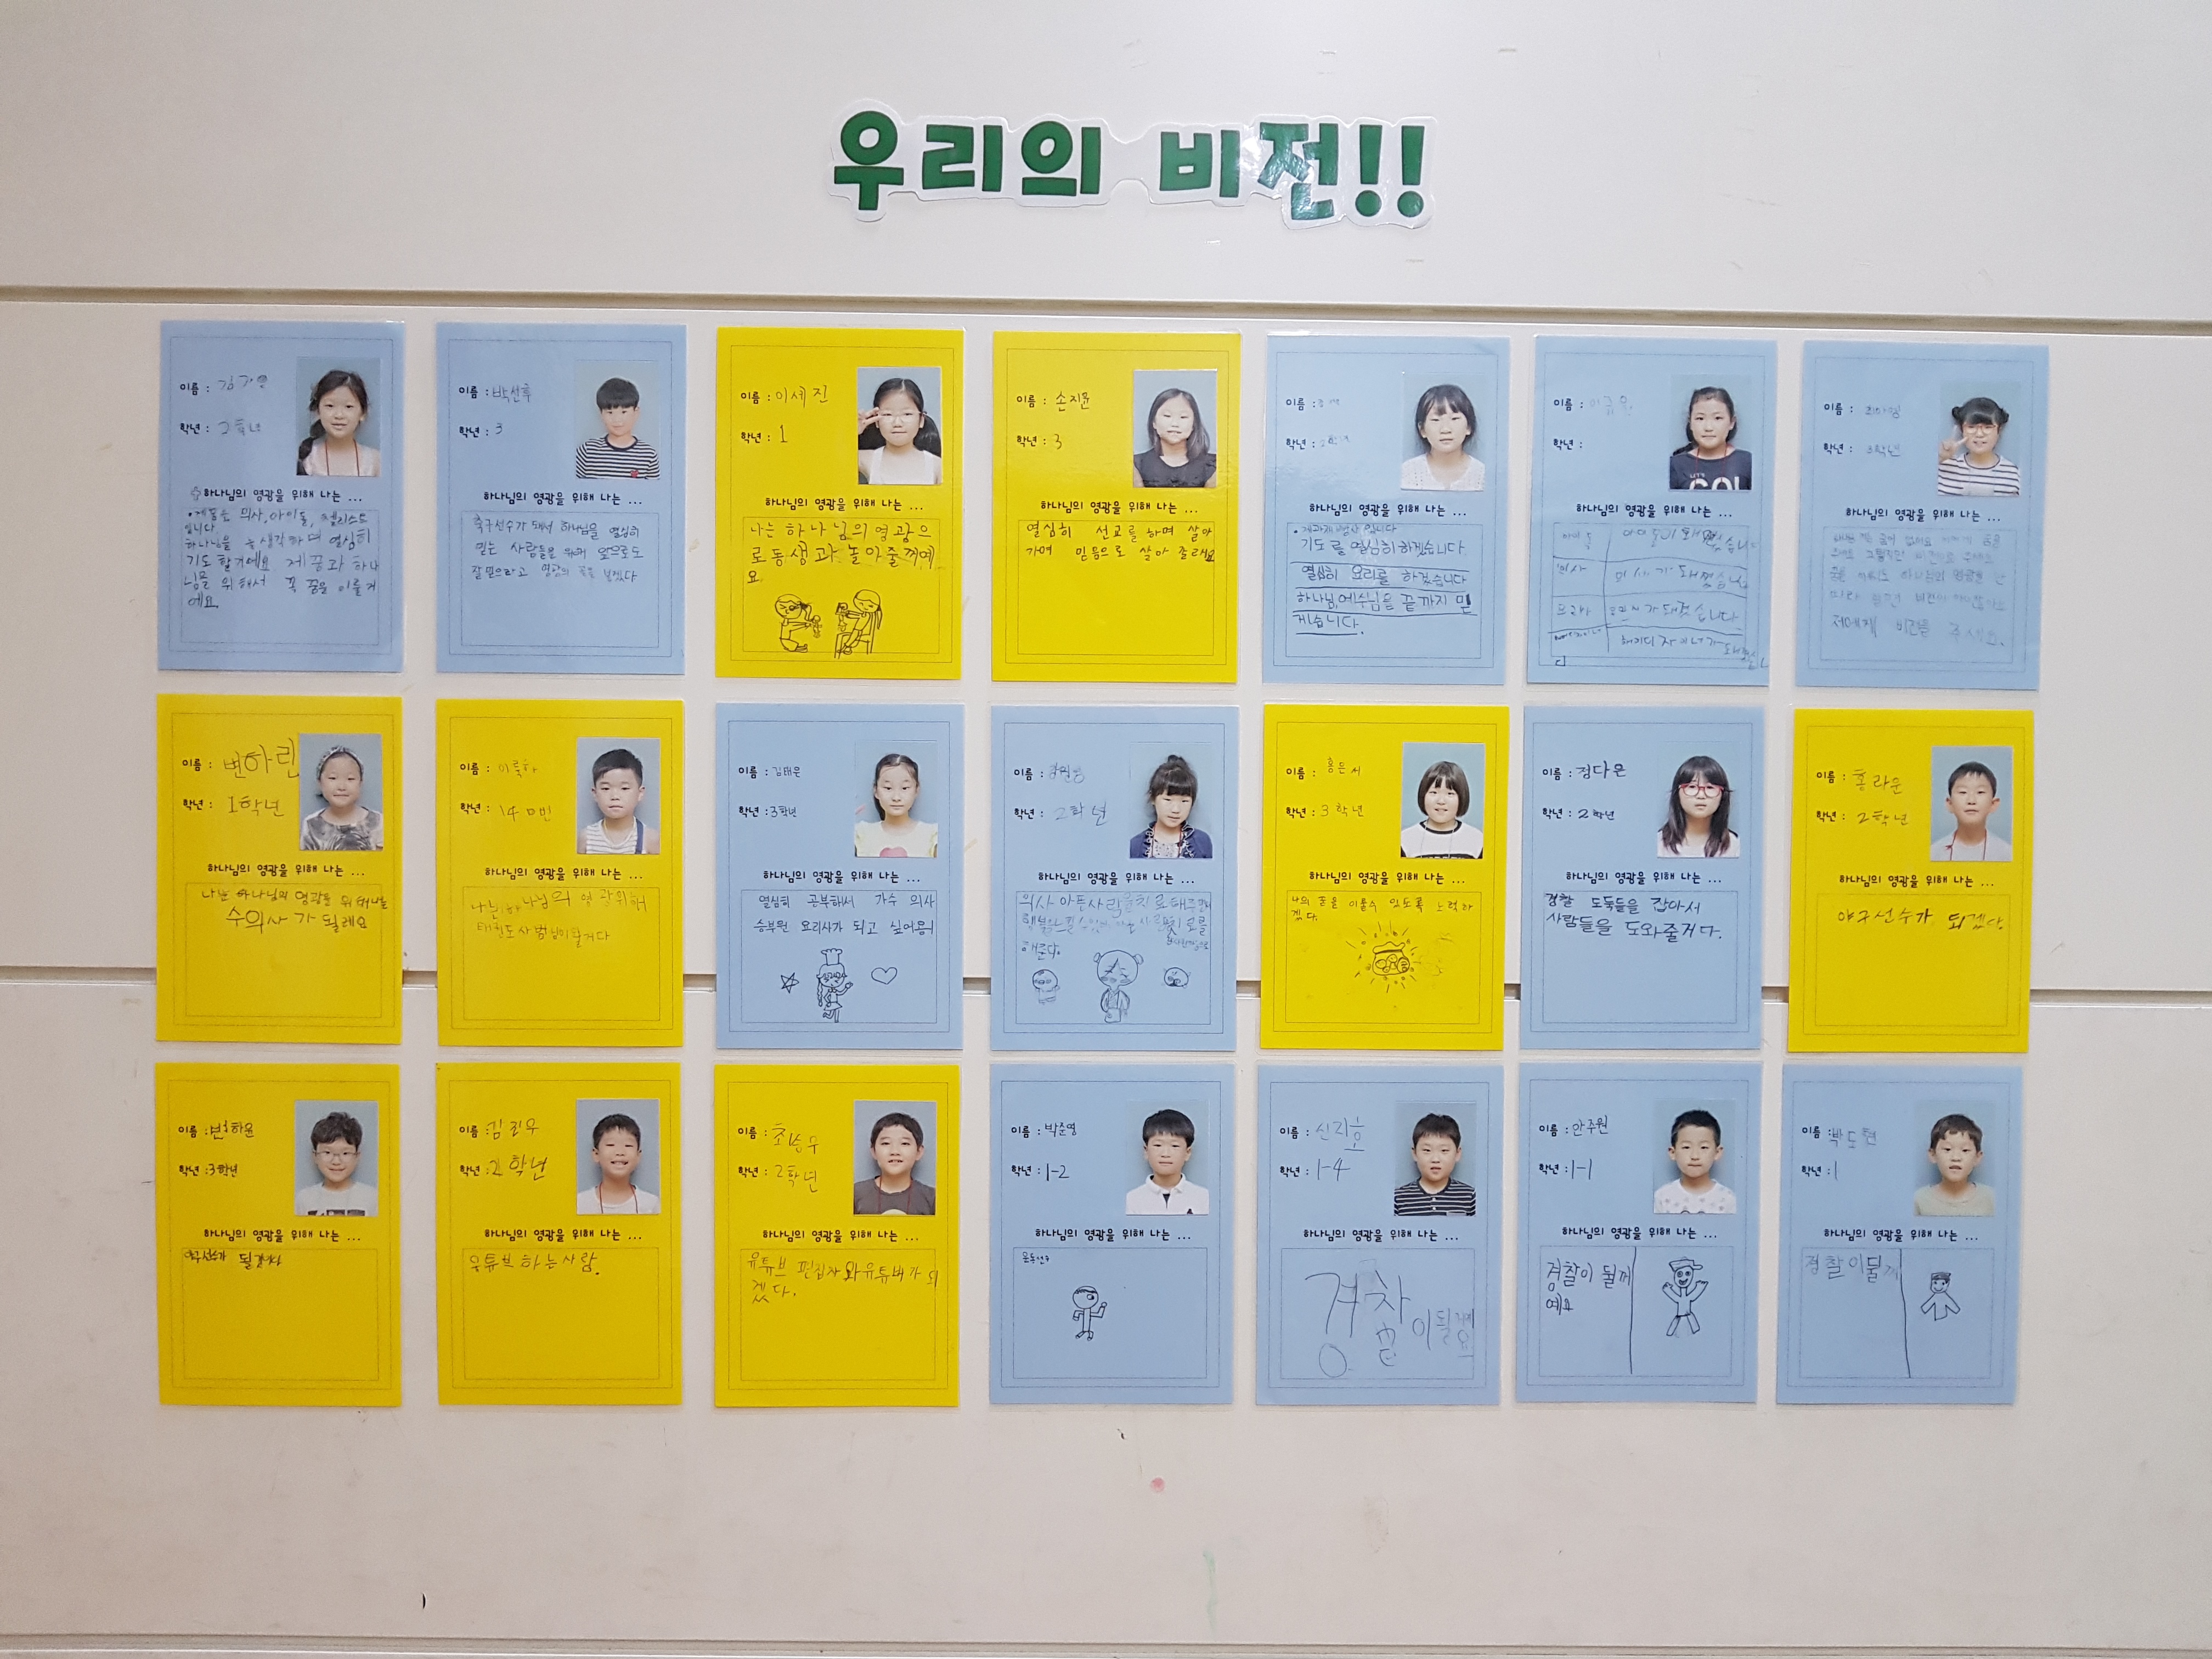 우리의 비전!!
이름 :
학년 : 2학년
하나님의 영광을 위해 나는 ...
의사, 아이돌, 첼리스트
입니다
하나님을 늘 생각하며 열심히
기도 할거에요 제 꿈과 하나
님을 위해서 꼭 꿈을 이룰거
에요.
이름 : 박선후
학년 : 3
하나님의 영광을 위해 나는 ...
축구선수가 돼서 하나님을 열심히
믿는 사람들을 위해 앞으로도
잘 믿으라고 영광의 골을 넣겠다
이름 : 이세진
학년 : 1
하나님의 영광을 위해 나는 ...
나는 하나님의 영광으
로 동생과 놀아줄꺼예
요
이름 : 손지윤
학년 : 3
하나님의 영광을 위해 나는 ...
열심히 선교를 하며 살아
가며 믿음으로 살아 줄래요
이름 :
학년 :
하나님의 영광을 위해 나는 ...
입니다
기도를 열심히하겠습니다
열심히 요리를 하겠습니다
하나님, 예수님을 끝까지 믿
게습니다.
이름 :
학년 :
하나님의 영광을 위해 나는 ...
아이돌 아이돌이 돼겠습니다
의사 의사가 돼겠습니다
가돼겟습니다
이름 :
학년 : 3학년
하나님의 영광을 위해 나는 ...
저에게 비전을 주세요.
이름 : 변하린
학년 : 1학년
하나님의 영광을 위해 나는 ...
나는 하나님의 영광을 위해나는
수의사가 될레요
이름 : 이룩하
학년 : 14 ㅁ번
하나님의 영광을 위해 나는 ...
나는 하나님의 영광위해
사범님이될거다
이름 : 김태은
학년 : 3학년
하나님의 영광을 위해 나는 ...
열심히 공부해서 가수 의사
승부원 요리사가 되고 싶어용!
이름 :
학년 : 2학년
하나님의 영광을 위해 나는 ...
의사 아픈사람을치료해주면서
해준다.
이름 : 홍은서
학년 : 3학년
하나님의 영광을 위해 나는 ...
나의 꿈을 이룰수 있도록 노력하
겠다.
이름 : 정다은
학년 : 2학년
하나님의 영광을 위해 나는 ...
경찰 도둑들을 잡아서
사람들을 도와줄거다.
이름 : 홍라운
학년 : 2학년
하나님의 영광을 위해 나는 ...
야구선수가 되겠다.
이름 : 변하윤
학년 : 3학년
하나님의 영광을 위해 나는 ...
야구선수가 될겁니다
이름 : 김진우
학년 : 2학년
하나님의 영광을 위해 나는 ...
유튜브 하는사람.
이름 : 최승우
학년 : 2학년
하나님의 영광을 위해 나는 ...
유튜브 편집자와유튜버가 되
겠다.
이름 : 박준영
학년 : 1-2
하나님의 영광을 위해 나는 ...
운동선수
이름 : 신리호
학년 : 1-4
하나님의 영광을 위해 나는 ...
경찰이될거예요
이름 : 안주원
학년 : 1-1
하나님의 영광을 위해 나는 ...
경찰이 될꺼
예요
이름 : 박도현
학년 : 1
하나님의 영광을 위해 나는 ...
경찰이될꺼